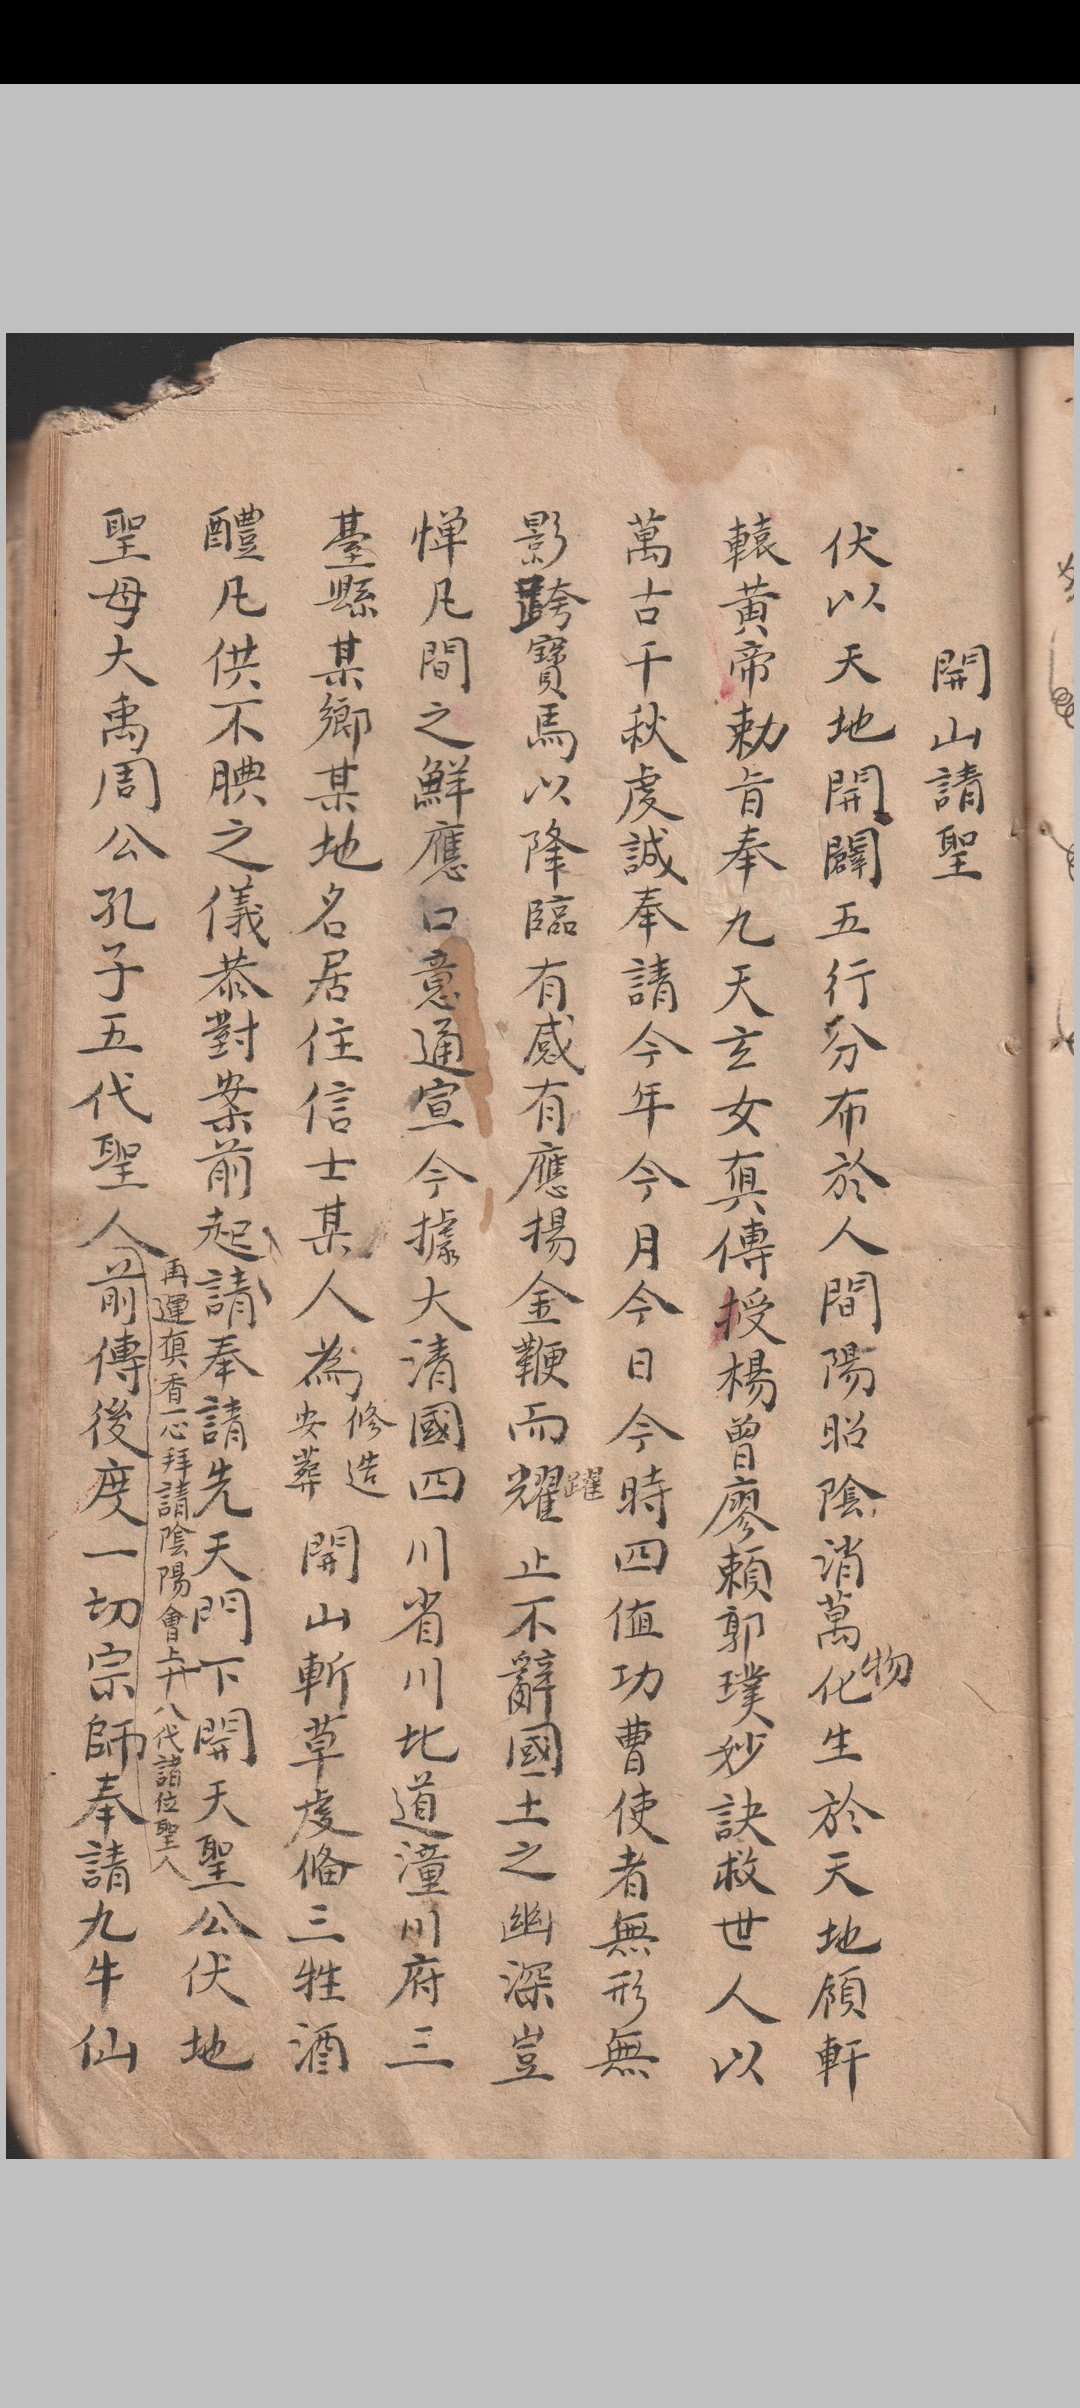 開山請聖
伏以天地開闢五行分布於人間陽昭陰消萬物化生於天地領軒
轅黃帝勅旨奉九天玄女真傳授楊曾廖賴郭璞妙訣救世人以
萬古千秋虔誠奉請今年今月今日今時四值功曹使者無形無
影跨寶馬以降臨有感有應揚金鞭而耀躍止不辭國土之幽深豈
憚凡間之鮮應口意通宣今據大清國四川省川北道潼川府三
臺縣某鄉某地名居住信士某人為修造安葬開山斬草虔俻三牲酒
醴凡供不腆之儀恭對案前起請奉請先天門下開天聖公伏地
再運真香一心拜請陰陽會上廾八代諸位聖人
聖母大禹周公孔子五代聖人前傳後度一切宗師奉請九牛仙